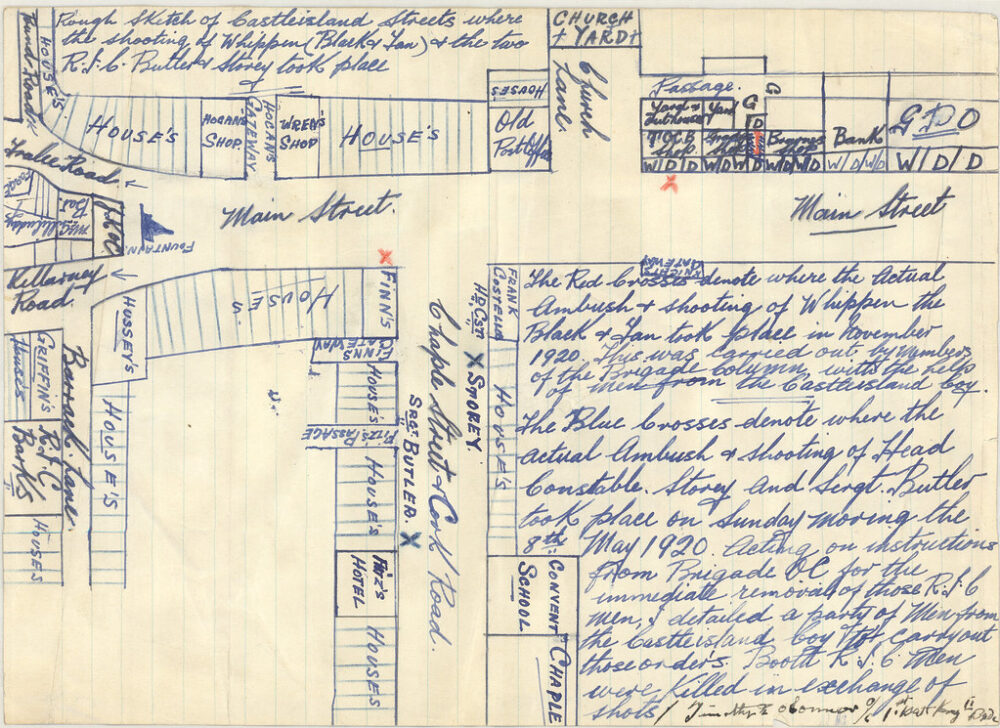 Rough Sketch of Castleisland Streets where
the shooting of Whippen (Black & Tan) & the two
R.I.C. Butler & Storey took place
CHURCH
+ YARD +
Church
Lane.
HOUSE'S
Tralee Road.
HOUSE'S
HOGANS
SHOP
HOGAN'S
GATEWAY
WREN'S
SHOP
HOUSE'S
HOUSES
Old
Post Office
Passage.
Yard &
Yard
G
G
D
Shop
Bank
G P O
W/D/D
W/D/W/D
W/D/D
Main Street.
Main Street
FOUNTAIN
Killarney
Road.
HUSSEY'S
HOUSE'S
FINN'S
FINNS
GATEWAY
KNIGHTS
GATEWAY
FRANK
HD. CST.
X STOREY.
HOUSE'S
GRIFFIN'S
Houses
R.I.C
Barrack Lane.
HOUSE'S
HOUSES
HOUSE'S
FITZ'S PASSAGE
HOUSE'S
FITZ'S
HOTEL
HOUSES
SRGT BUTLER. X
Chaple Street & Cork Road.
CONVENT
SCHOOL
CHAPLE
The Red Crosses denote where the Actual
Ambush & shooting of Whippen the
Black & Tan took place in November
1920. This was carried out by Members
of the Brigade Column, with the help
of men from the Castleisland Coy.
The Blue Crosses denote where the
actual Ambush & shooting of Head
Constable. Storey and Sergt. Butler
took place on Sunday moring the
8th May 1920. Acting on instructions
from Brigade OC for the
immediate removal of those R.I.C
men, I detailed a party of Men from
the Castleisland Coy to carry out
those order's. Booth R.I.C Men
were Killed in exchange of
shots / Timothy O'Connor O/C 1st Batt Kerry II